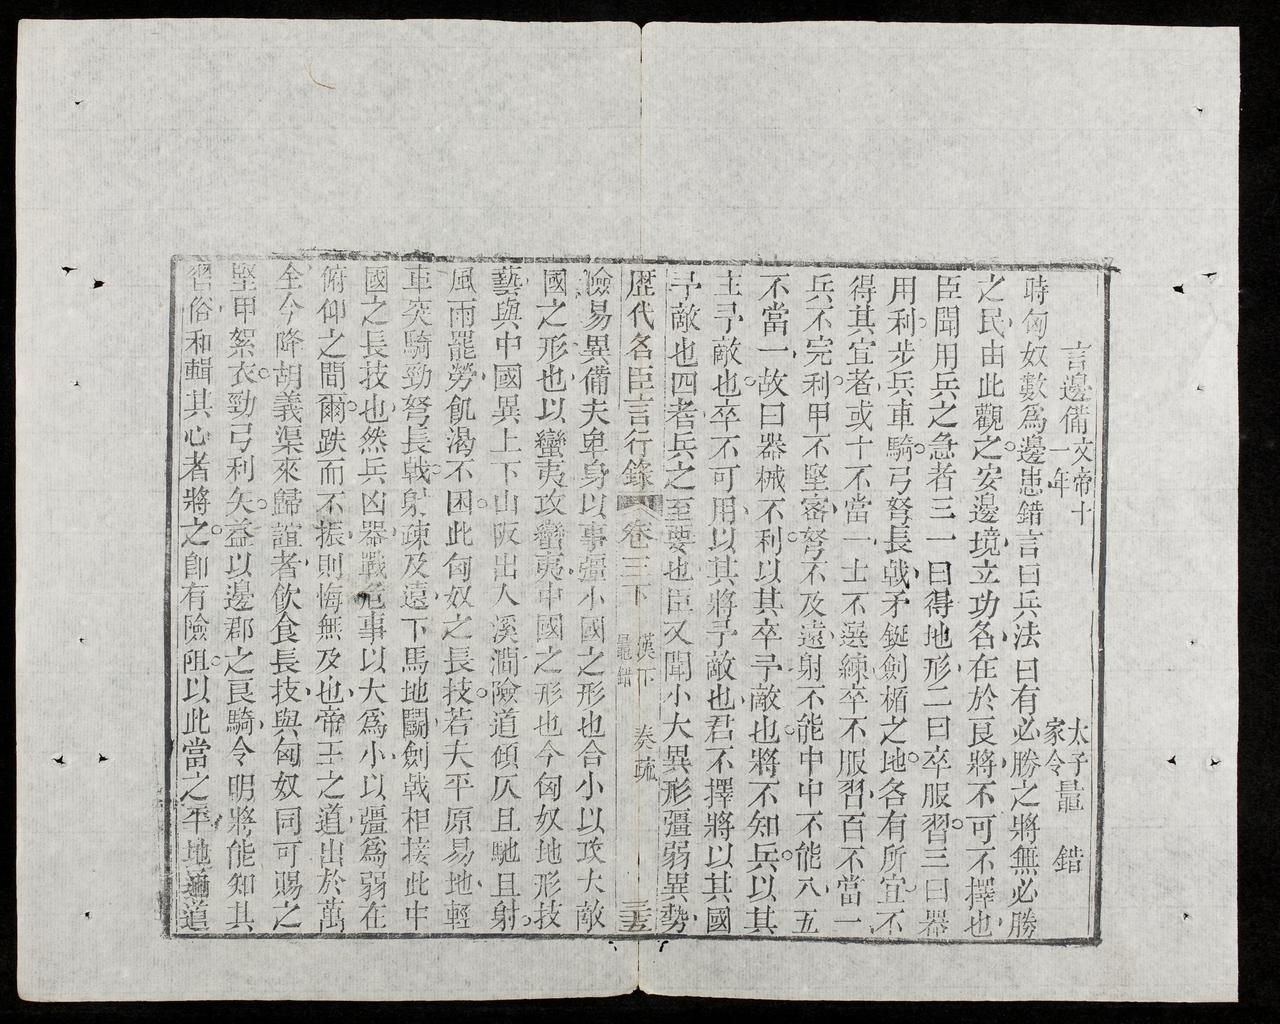 言邊備文帝十一年 太子家令鼂 錯
時匈奴數爲邊患錯言曰兵法曰有必勝之將無必勝
之民由此觀之安邊境立功名在於良將不可不擇也
臣聞用兵之急者三一曰得地形二曰卒服習三曰器
用利步兵車騎弓弩長戟矛鋋劍楯之地各有所宜不
得其宜者或十不當一士不選練卒不服習百不當一
兵不完利甲不堅密弩不及遠射不能中中不能入五
不當一故曰器械不利以其卒予敵也將不知兵以其
主予敵也卒不可用以其將予敵也君不擇將以其國
予敵也四者兵之至要也臣又聞小大異形彊弱異勢
歷代名臣言行錄 卷三下 漢下 鼂錯 奏疏 三五
險易異備夫卑身以事彊小國之形也合小以攻大敵
國之形也以蠻夷攻蠻夷中國之形也今匈奴地形技
藝與中國異上下山阪出入溪澗險道傾仄且馳且射
風雨罷勞飢渴不困此匈奴之長技若夫平原易地輕
車突騎勁弩長戟射疎及遠下馬地鬭劍戟相接此中
國之長技也然兵凶器戰危事以大爲小以彊爲弱在
俯仰之間爾跌而不振則悔無及也帝王之道出於萬
全今降胡義渠來歸誼者飲食長技與匈奴同可賜之
堅甲絮衣勁弓利矢益以邊郡之良騎令明將能知其
習俗和輯其心者將之卽有險阻以此當之平地通道